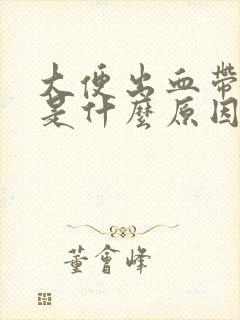 大便出血帶
是什麼原因
董會峰